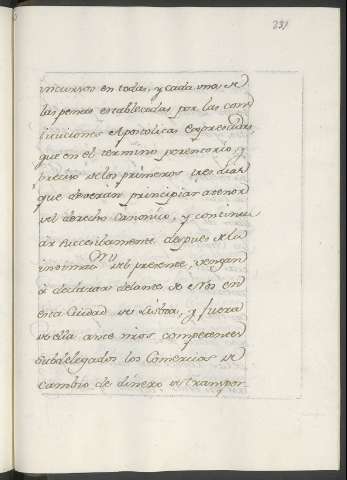 231
incursos en todas, y cada una de
las penas establecidas por las cons
tituciones Apostolicas expresadas
que en el termino perentorio, y
preciso de los primeros tres dias
que deveràn principiar a tenor
del derecho Canonico, y continu
àr succesibamente despues de la
intima.on del presente, vengan
à declarar delante de Nos en
esta Ciudad de Lisboa, y fuera
de ella ante nros competentes
Subdelegados los Comercios de
cambio de dinero, de transpor